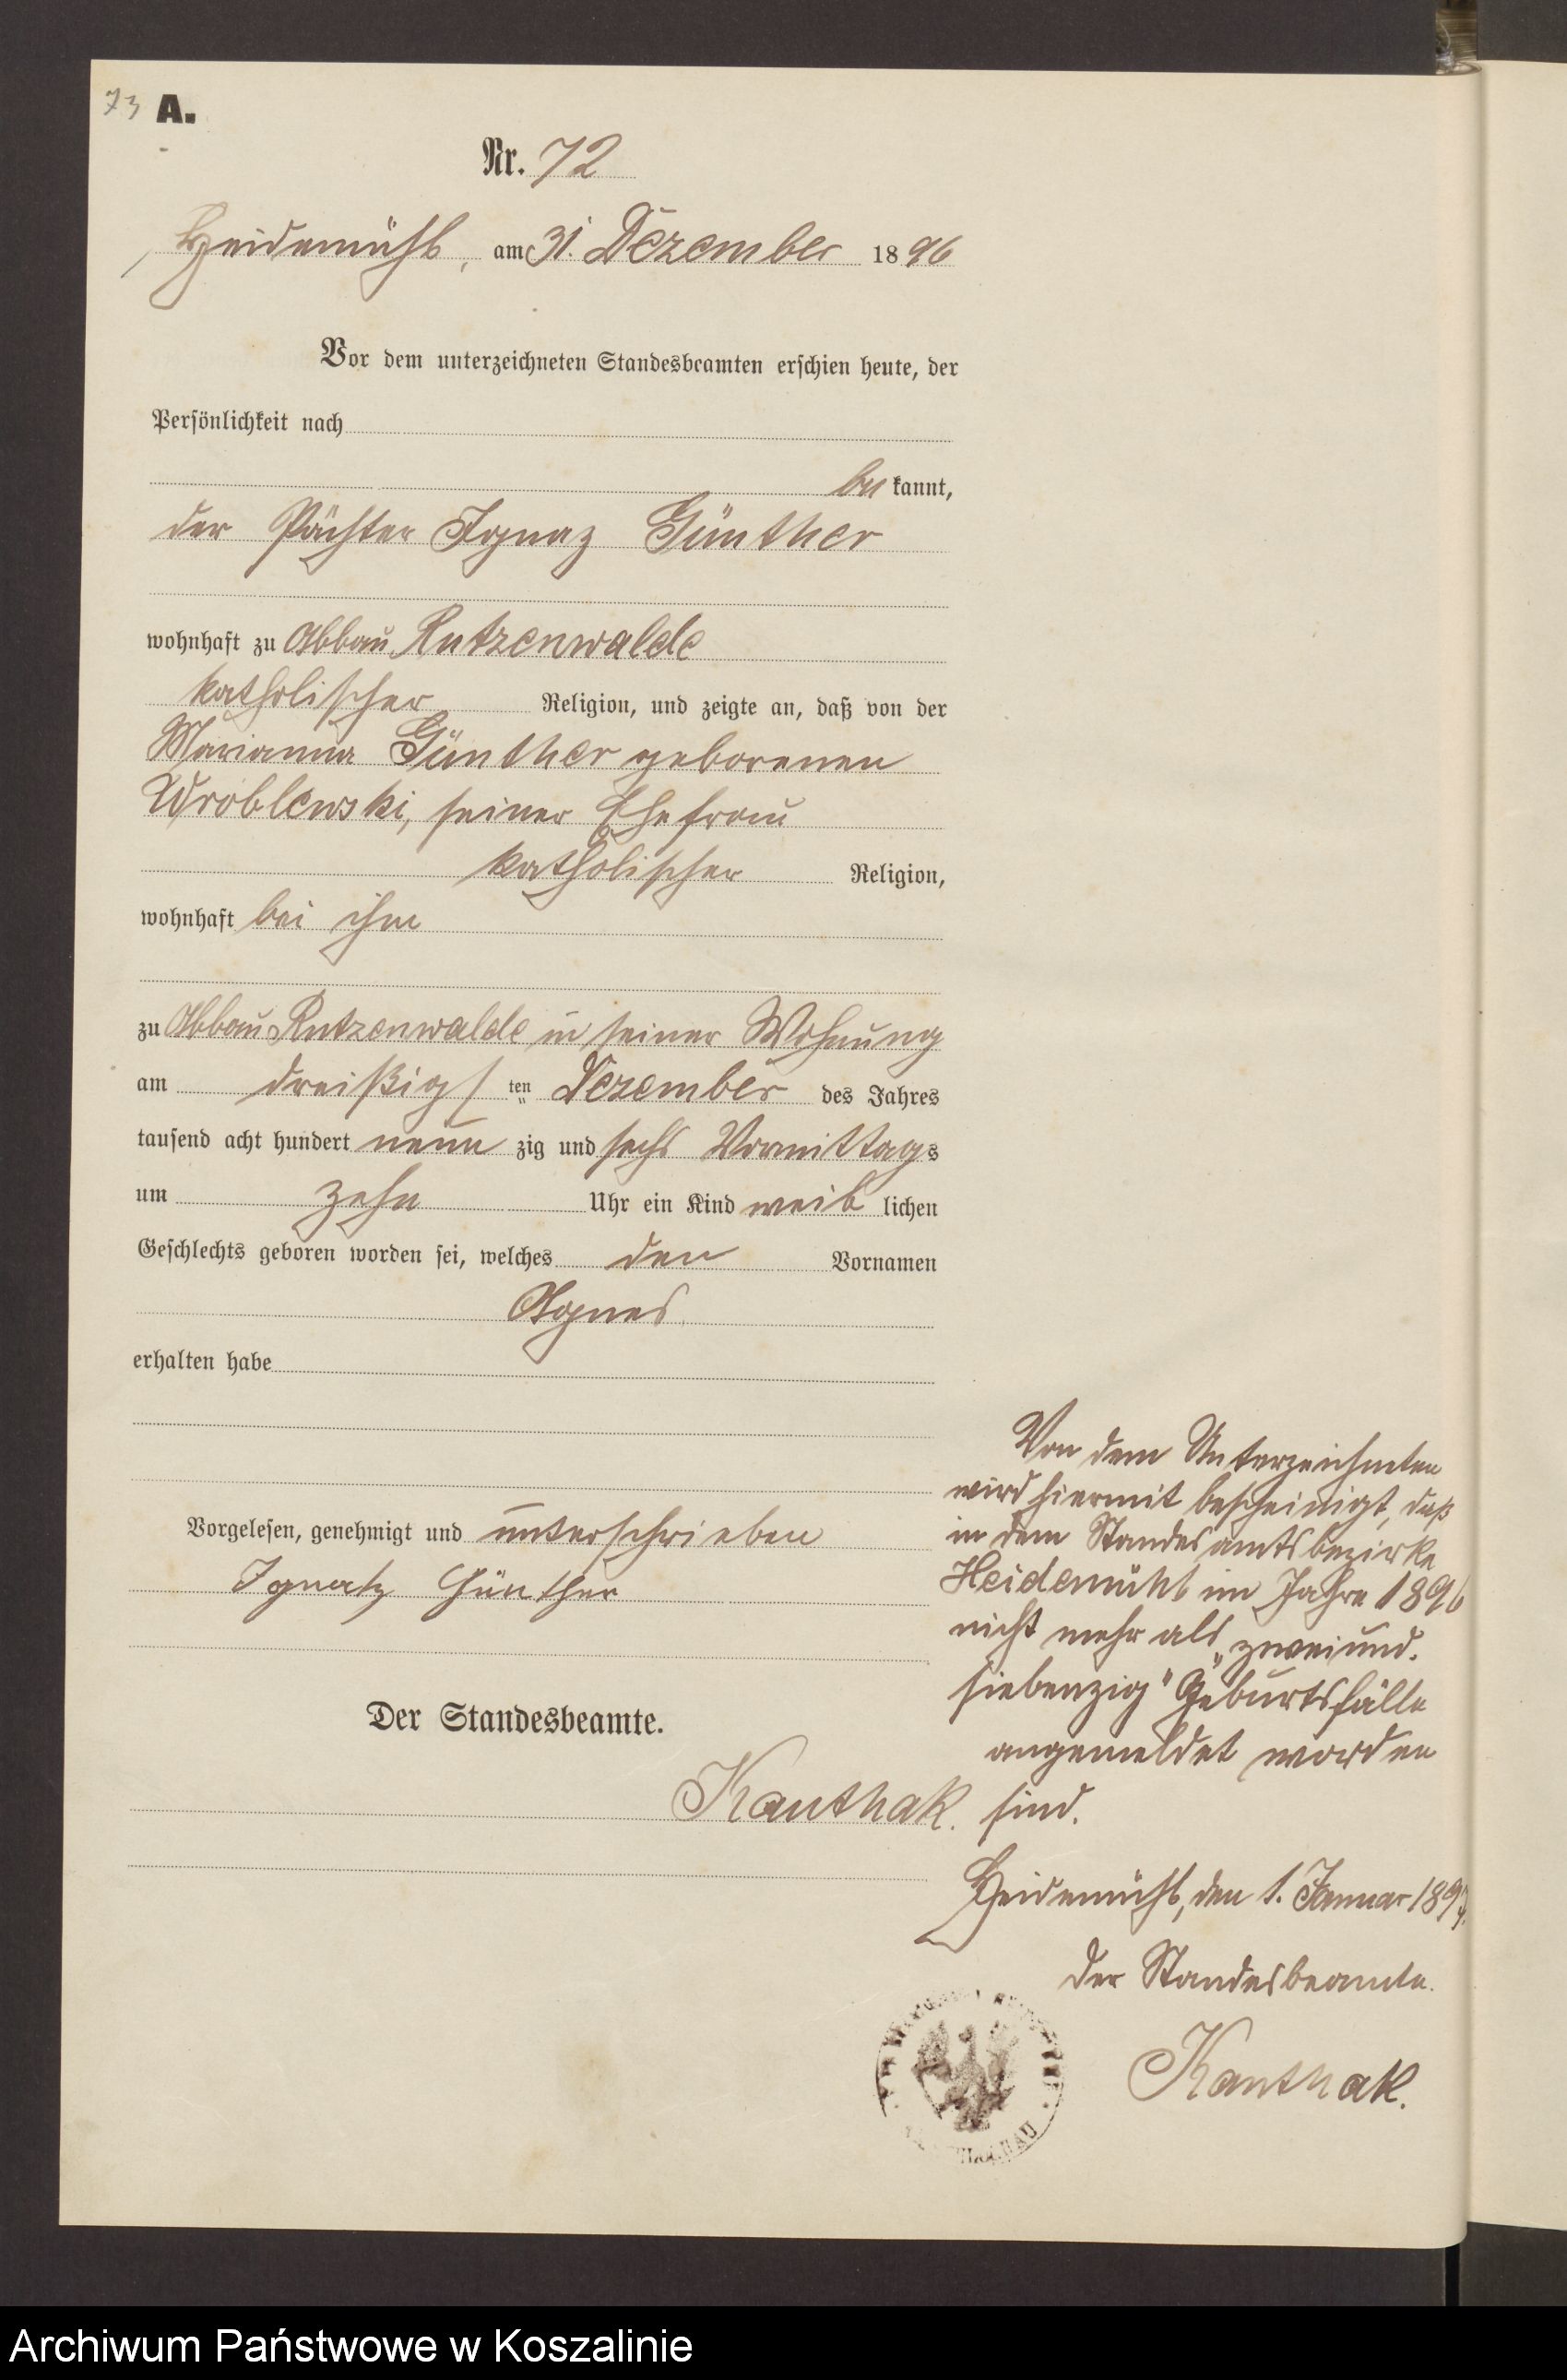 73 A.
Nr. 72
Heidemühl, am 31. Dezember 1896
Vor dem unterzeichneten Standesbeamten erschien heute, der
Persönlichkeit nach
be kannt,
der Pächter Ignaz Günther
wohnhaft zu Abbau Rutzenwalde
katholischer Religion, und zeigte an, daß von der
Marianna Günther geborenen
Wroblewski, seiner Ehefrau
katholischer Religion,
wohnhaft bei ihm
zu Abbau Rutzenwalde in seiner Wohnung
am dreißigs ten Dezember des Jahres
tausend acht hundert neun zig und sechs Vormittags
um zehn Uhr ein Kind weib lichen
Geschlechts geboren worden sei, welches den Vornamen
Agnes
erhalten habe
Vorgelesen, genehmigt und unterschrieben
Ignatz Günther
Der Standesbeamte.
Kanthak.
Von dem Unterzeichneten
wird hiermit bescheinigt, daß
in dem Standesamtsbezirke
Heidemühl im Jahre 1896
nicht mehr als „zweiund-
siebenzig" Geburtsfälle
angemeldet worden
sind.
Heidemühl, den 1. Januar 1897.
Der Standesbeamte.
Kanthak.
Archiwum Państwowe w Koszalinie